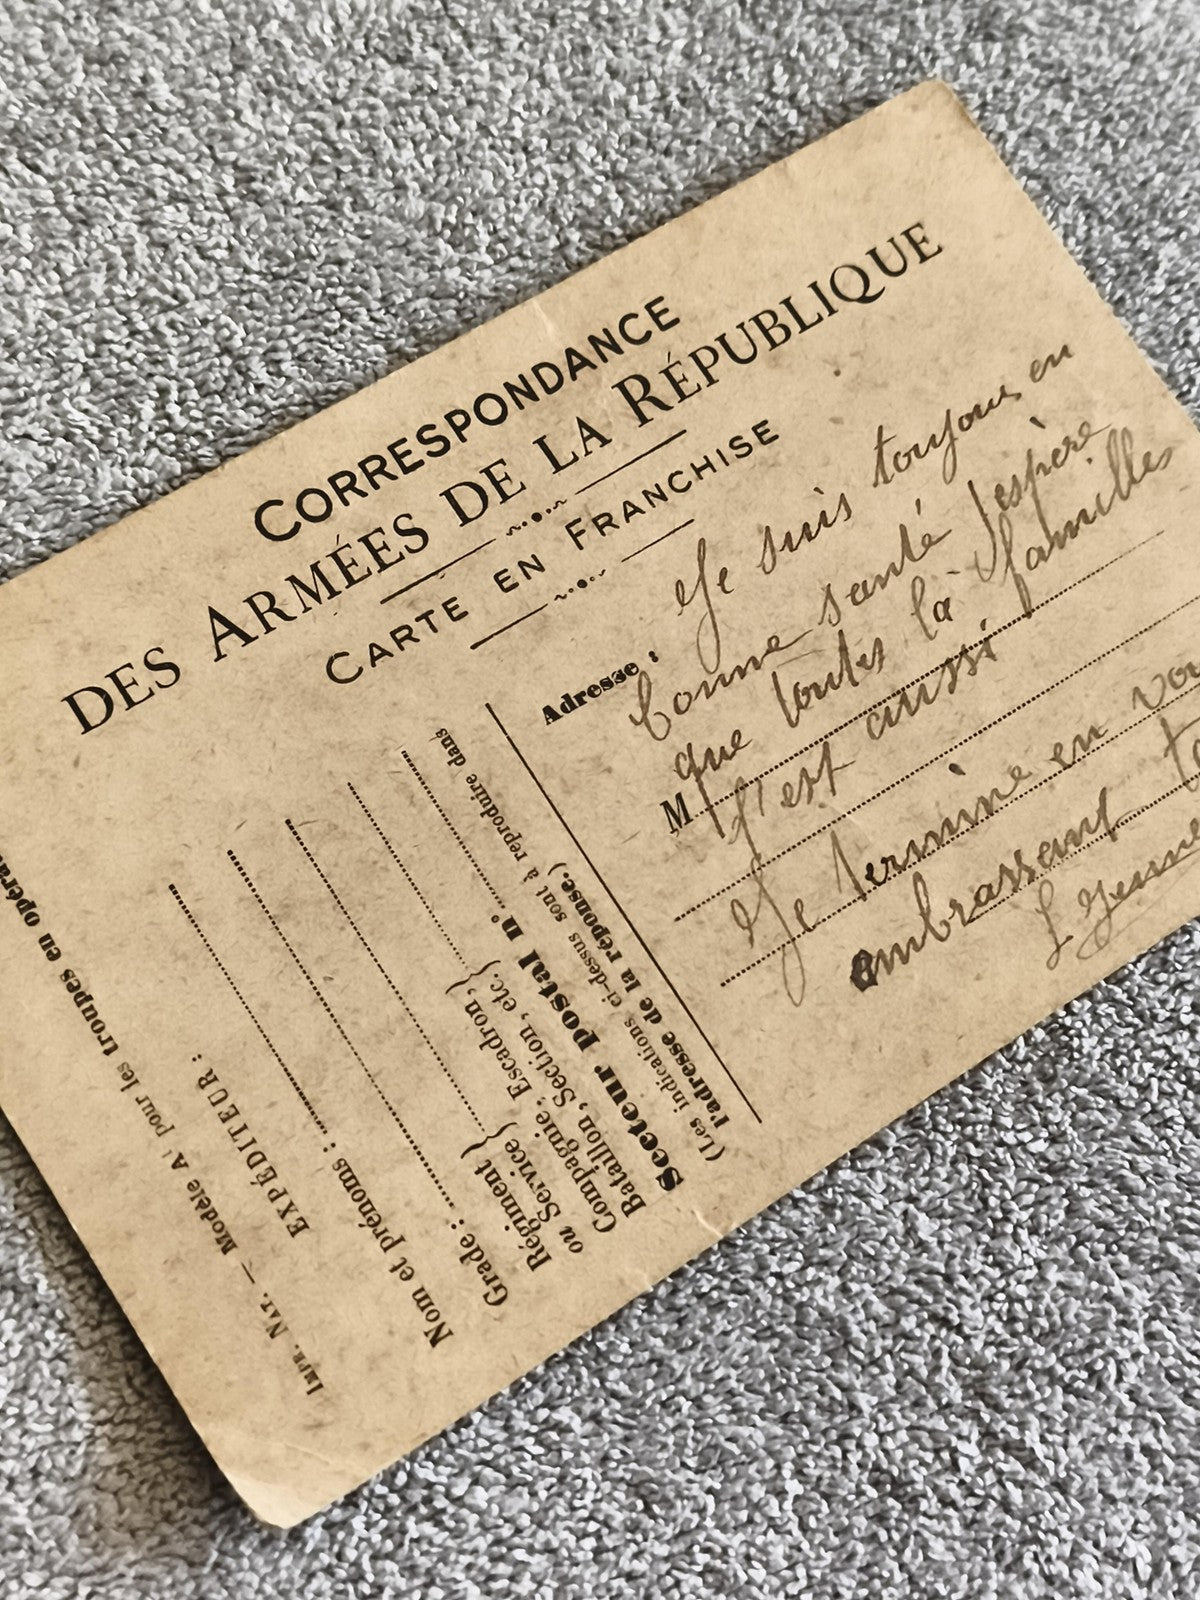 CORRESPONDANCE
DES ARMÉES DE LA RÉPUBLIQUE
CARTE EN FRANCHISE
Adresse :
Je suis toujours en
bonne santé J'espère
que toutes la familles
M
l'est aussi
Je termine en vou
embrassent
IMP. NAT. — Modèle A¹ pour les troupes en opéra
EXPÉDITEUR :
Nom et prénoms :
Grade :
Régiment
ou Service
Compagnie, Escadron,
Bataillon, Section, etc.
Secteur postal n°
(Les indications ci-dessus sont à reproduire dans
l'adresse de la réponse.)